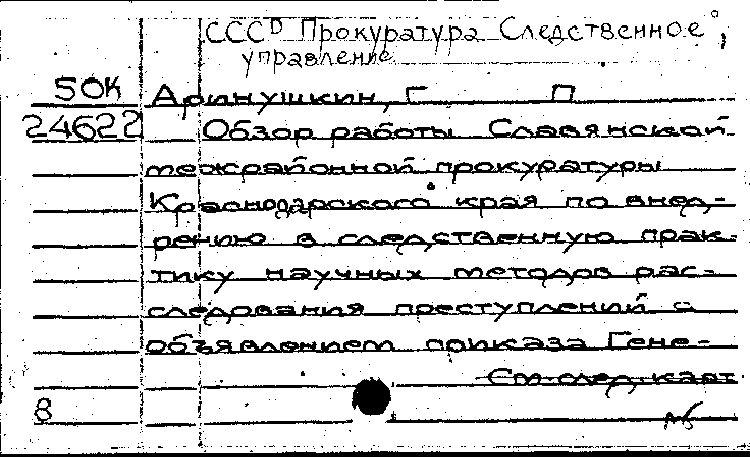 СССР Прокуратура Следственное
управление
50К Аринушкин, Г П
24622 Обзор работы Славянской
межрайонной прокуратуры
Краснодарского края по внед-
рению в следственную прак-
тику научных методов рас-
следования преступлений с
объявлением приказа Гене-
См. след. карт.
8